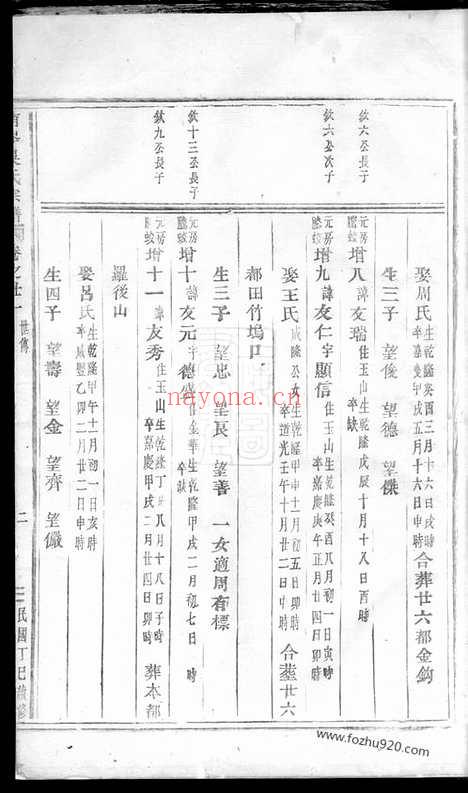 欽六公長子
欽六公次子
欽十三公長子
欽九公長子
娶周氏 生乾隆癸酉三月十六日戌時 卒嘉慶甲戌五月十六日申時 合葬廿六都金鈎
生三子 望俊 望德 望傑
元房騰蛟 增八 諱友瑞 住玉山生乾隆戊辰十月十八日酉時 卒缺
元房騰蛟 增九 諱友仁字顯信 住玉山生乾隆癸酉八月初一日寅時 卒嘉慶庚午正月廿四日卯時
娶王氏 咸隆公女生乾隆甲申十一月初五日卯時 卒道光壬午十月廿二日申時 合葬廿六
都田竹塢口
生三子 望忠 望良 望善 一女適周有標
元房騰蛟 增十 諱友元字德 住金華生乾隆甲戌二月初七日 時 卒缺
元房騰蛟 增十一 諱友秀 住玉山生乾隆丁 八月十八日子時 卒嘉慶甲戌二月廿四日卯時 葬本都
羅後山
娶呂氏 生乾隆甲午十一月初一日亥時 卒咸豐乙卯二月廿二日申時
生四子 望壽 望金 望齊 望儼
吳氏宗譜 卷之廿一 世傳 二 民國丁巳
nayona.cn
www.fozhu920.com